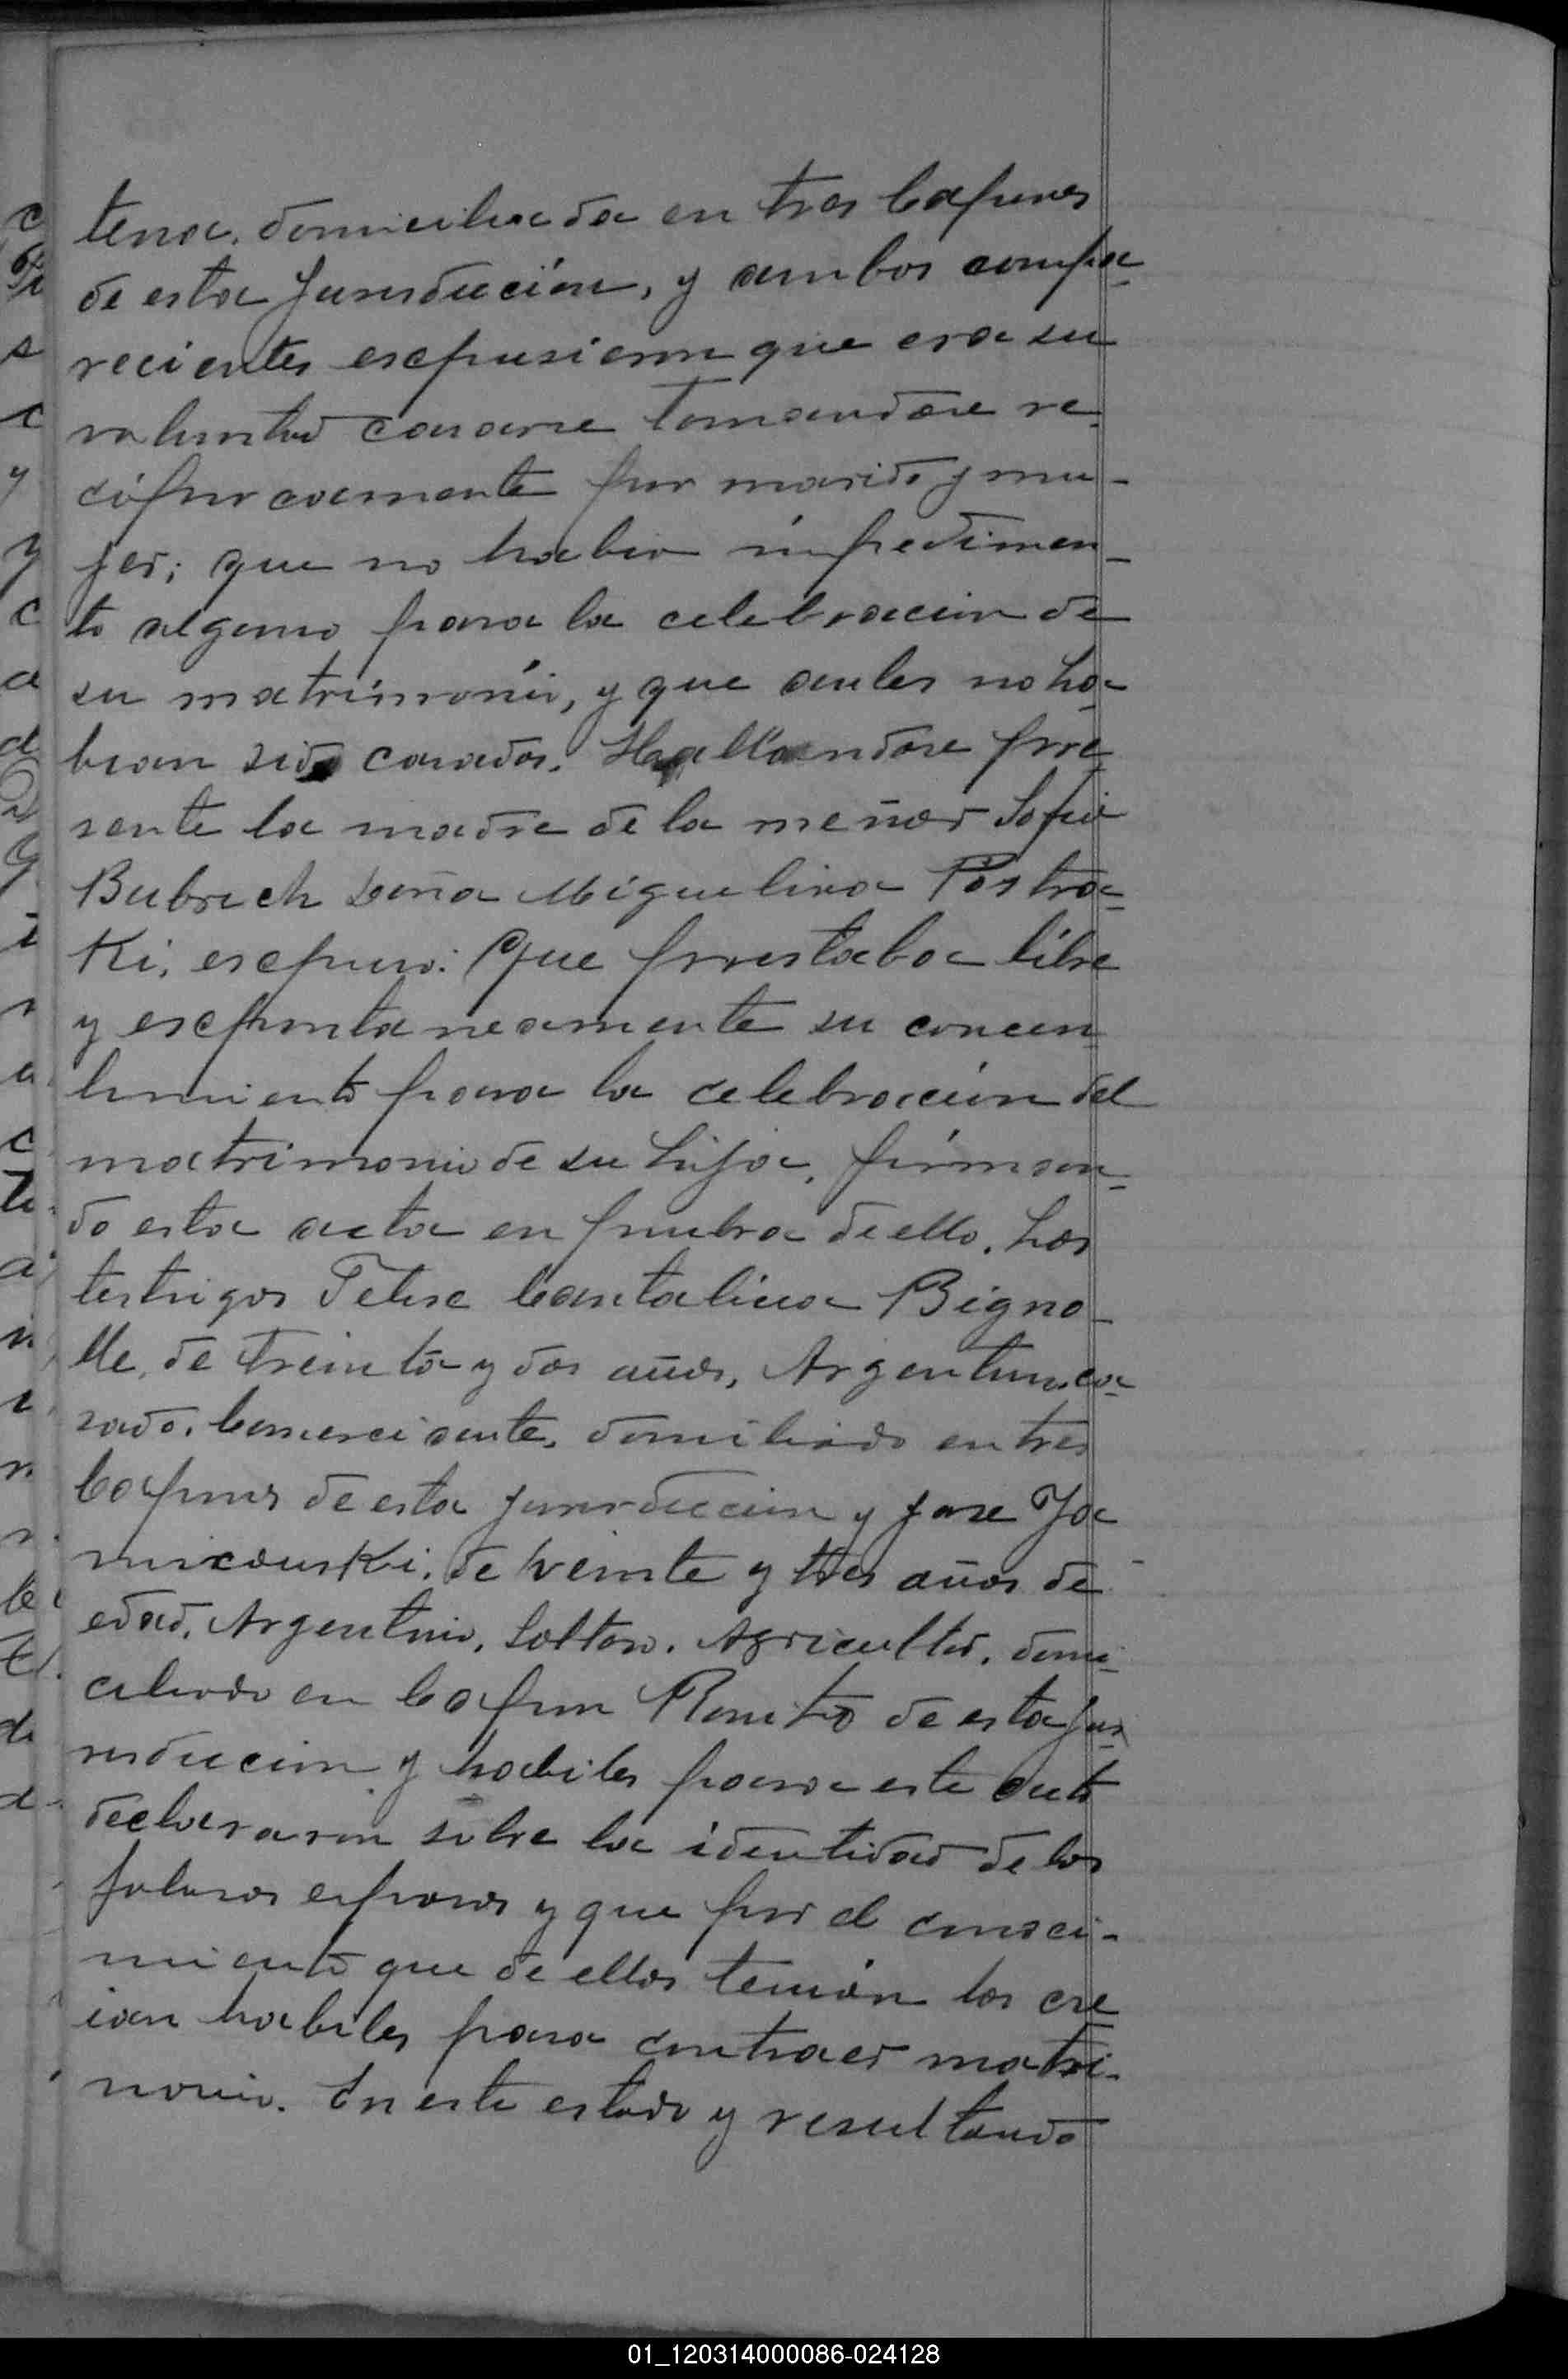 tena, domiciliada en tres Capones
de esta Jurisdicción, y ambos compa-
recientes escpusieron que era su
voluntad casarse tomandose re-
ciprocamente por marido y mu-
jer; que no habia impedimen-
to alguno para la celebracion de
su matrimonio, y que antes no ha-
bian sido casados. Hallandose pre-
sente la madre de la menor Sofia
Bubrech Doña Miguelina Postra-
Ki, escpuso: Que prestaba libre
y escpontaneamente su concen
timiento para la celebracion del
matrimonio de su hija, firman-
do esta acta en prueba de ello. Los
testigos Felise Cantalicia Bigno-
lle, de treinta y dos años, Argentino, ca-
sado, Comerciante, domiliado en tres
Capones de esta jurisdiccion y Jose Ja
mixouski, de veinte y tres años de
edad, Argentino, Soltero, Agricultor, domi-
ciliado en Capon Bonito de esta Ju-
risducion y habiles para este acto
declararon sobre la identidad de los
futuros esposos y que por el conoci-
miento que de ellos tenian los cre
ian habiles para contraer matri-
monio. En este estado y resultando
01_120314000086-024128